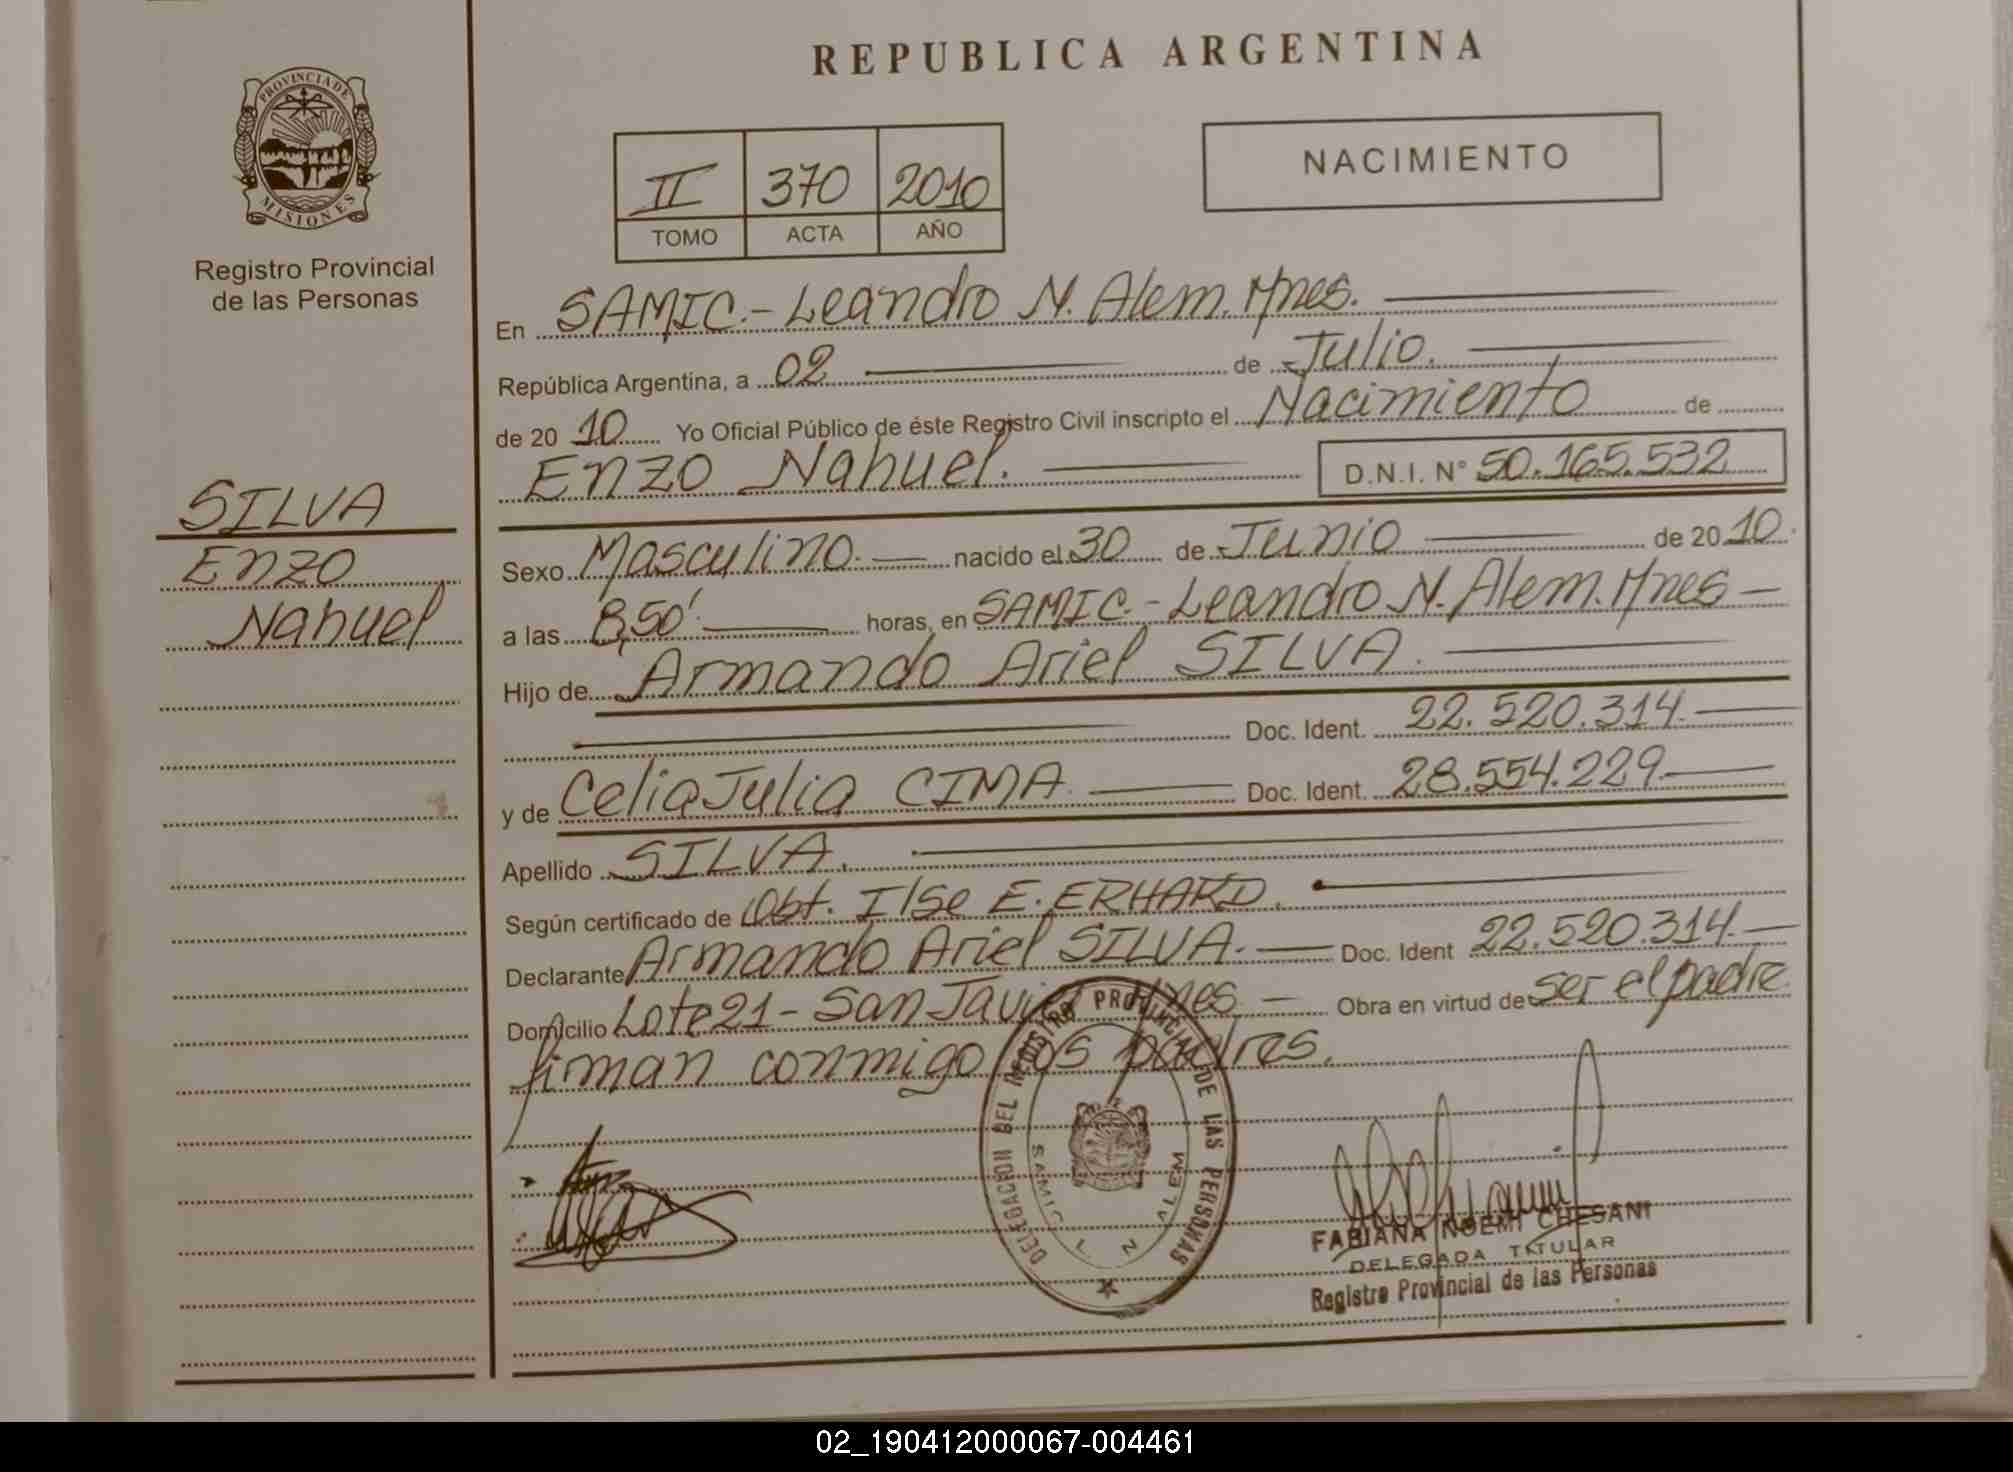 REPUBLICA ARGENTINA
PROVINCIA DE MISIONES
Registro Provincial
de las Personas
II 370 2010
TOMO ACTA AÑO
NACIMIENTO
En SAMIC.- Leandro N. Alem. Mnes.
República Argentina, a 02 de Julio.
de 20 10 Yo Oficial Público de éste Registro Civil inscripto el Nacimiento de
Enzo Nahuel. D.N.I. N° 50.165.532
SILVA
Enzo
Nahuel
Sexo Masculino. nacido el 30 de Junio de 20 10.
a las 8,50' horas, en SAMIC.- Leandro N. Alem. Mnes
Hijo de Armando Ariel SILVA.
Doc. Ident. 22.520.314.
y de Celia Julia CIMA. Doc. Ident. 28.554.229.
Apellido SILVA.
Según certificado de Obt. Ilse E. ERHARD.
Declarante Armando Ariel SILVA. Doc. Ident 22.520.314.
Domicilio Lote 21 - San Javier Mnes. Obra en virtud de ser el padre
firman conmigo los padres.
DELEGACION DEL REGISTRO PROVINCIAL DE LAS PERSONAS
SAMIC L N ALEM
FABIANA NOEMI CHESANI
DELEGADA TITULAR
Registro Provincial de las Personas
02_190412000067-004461